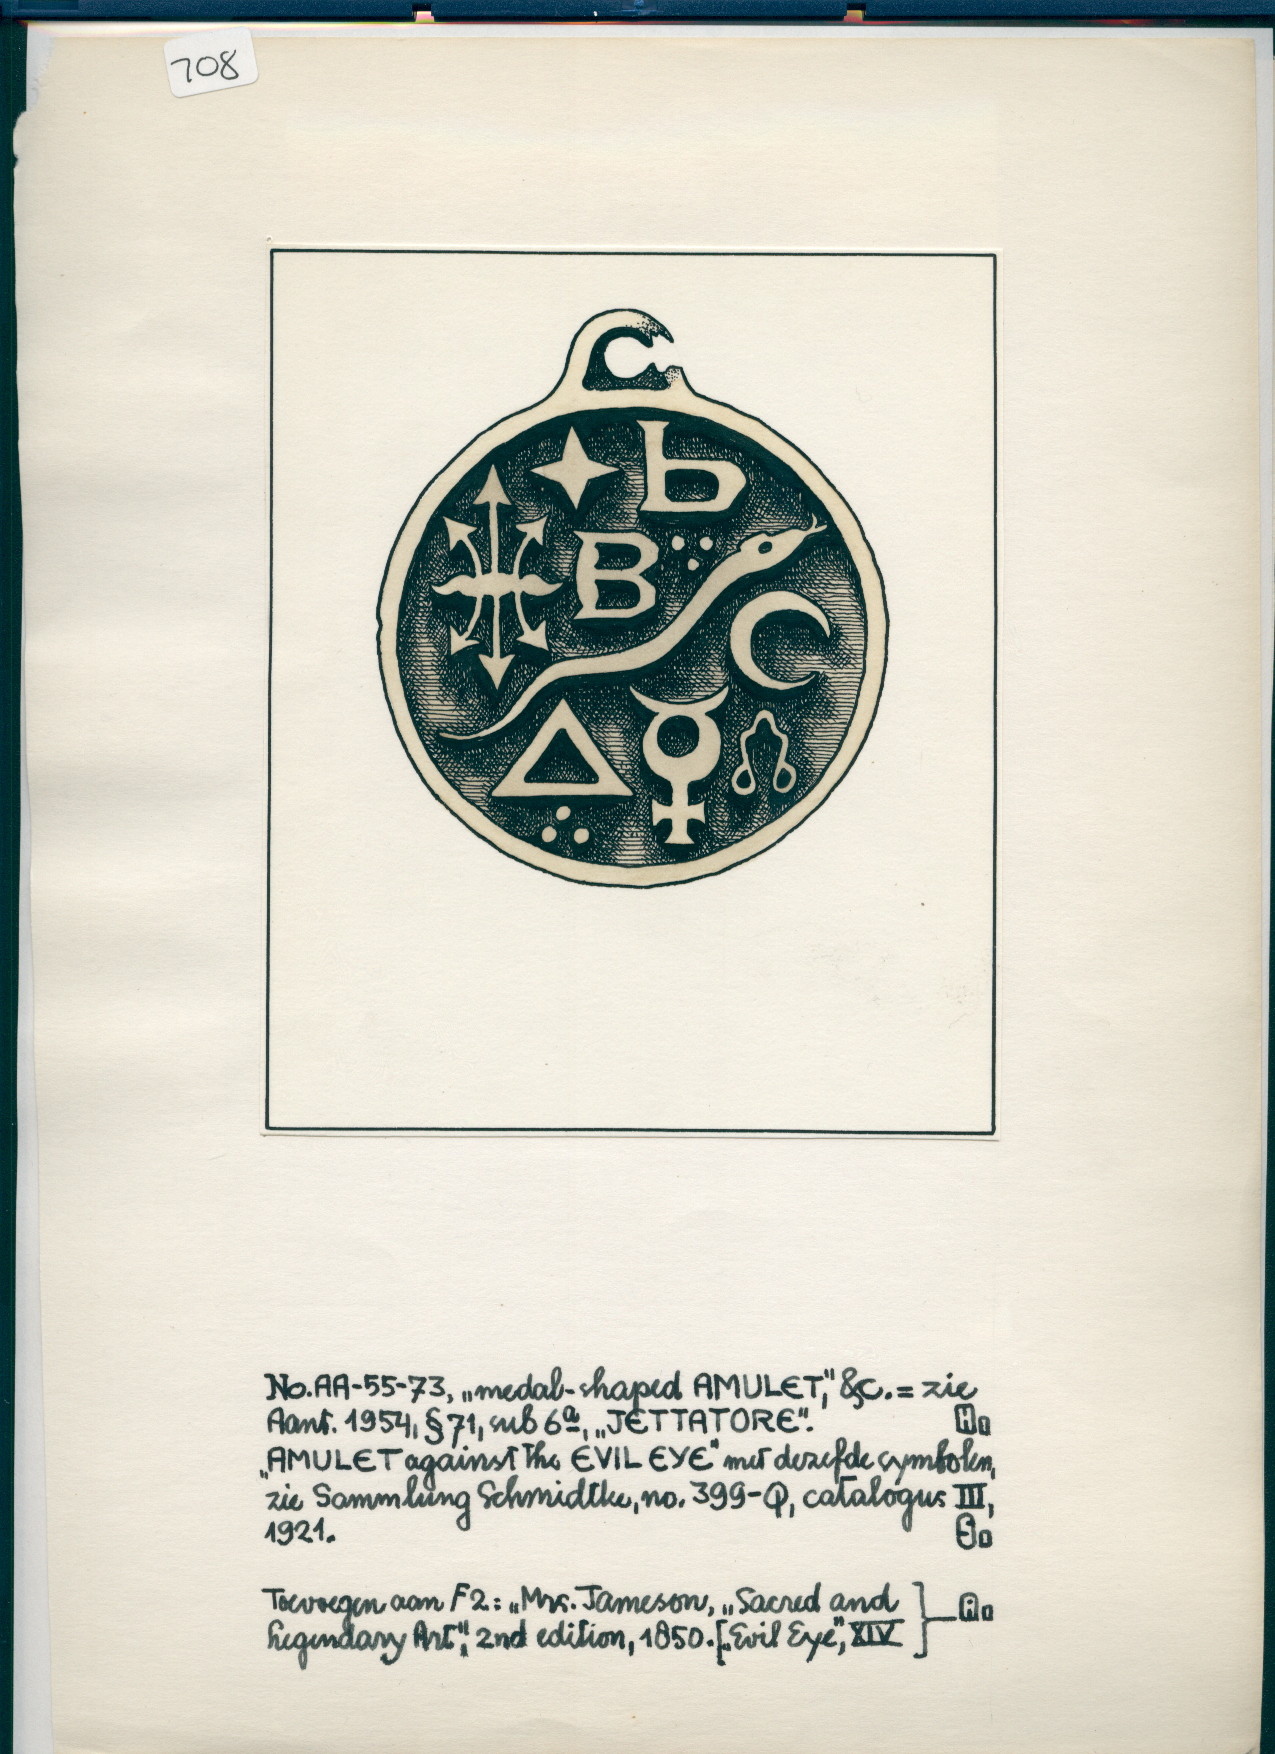 708
b
B
No. AA-55-73, „medal-shaped AMULET,” &c. = zie
Aant. 1954, § 71, sub 6a, „JETTATORE”.
„AMULET against the EVIL EYE” met dezefde symbolen,
zie Sammlung Schmidtke, no. 399-Q, catalogus III,
1921.
Toevoegen aan F2: „Mrs. Jameson, „Sacred and
Legendary Art”, 2nd edition, 1850. [„Evil Eye”, XIV